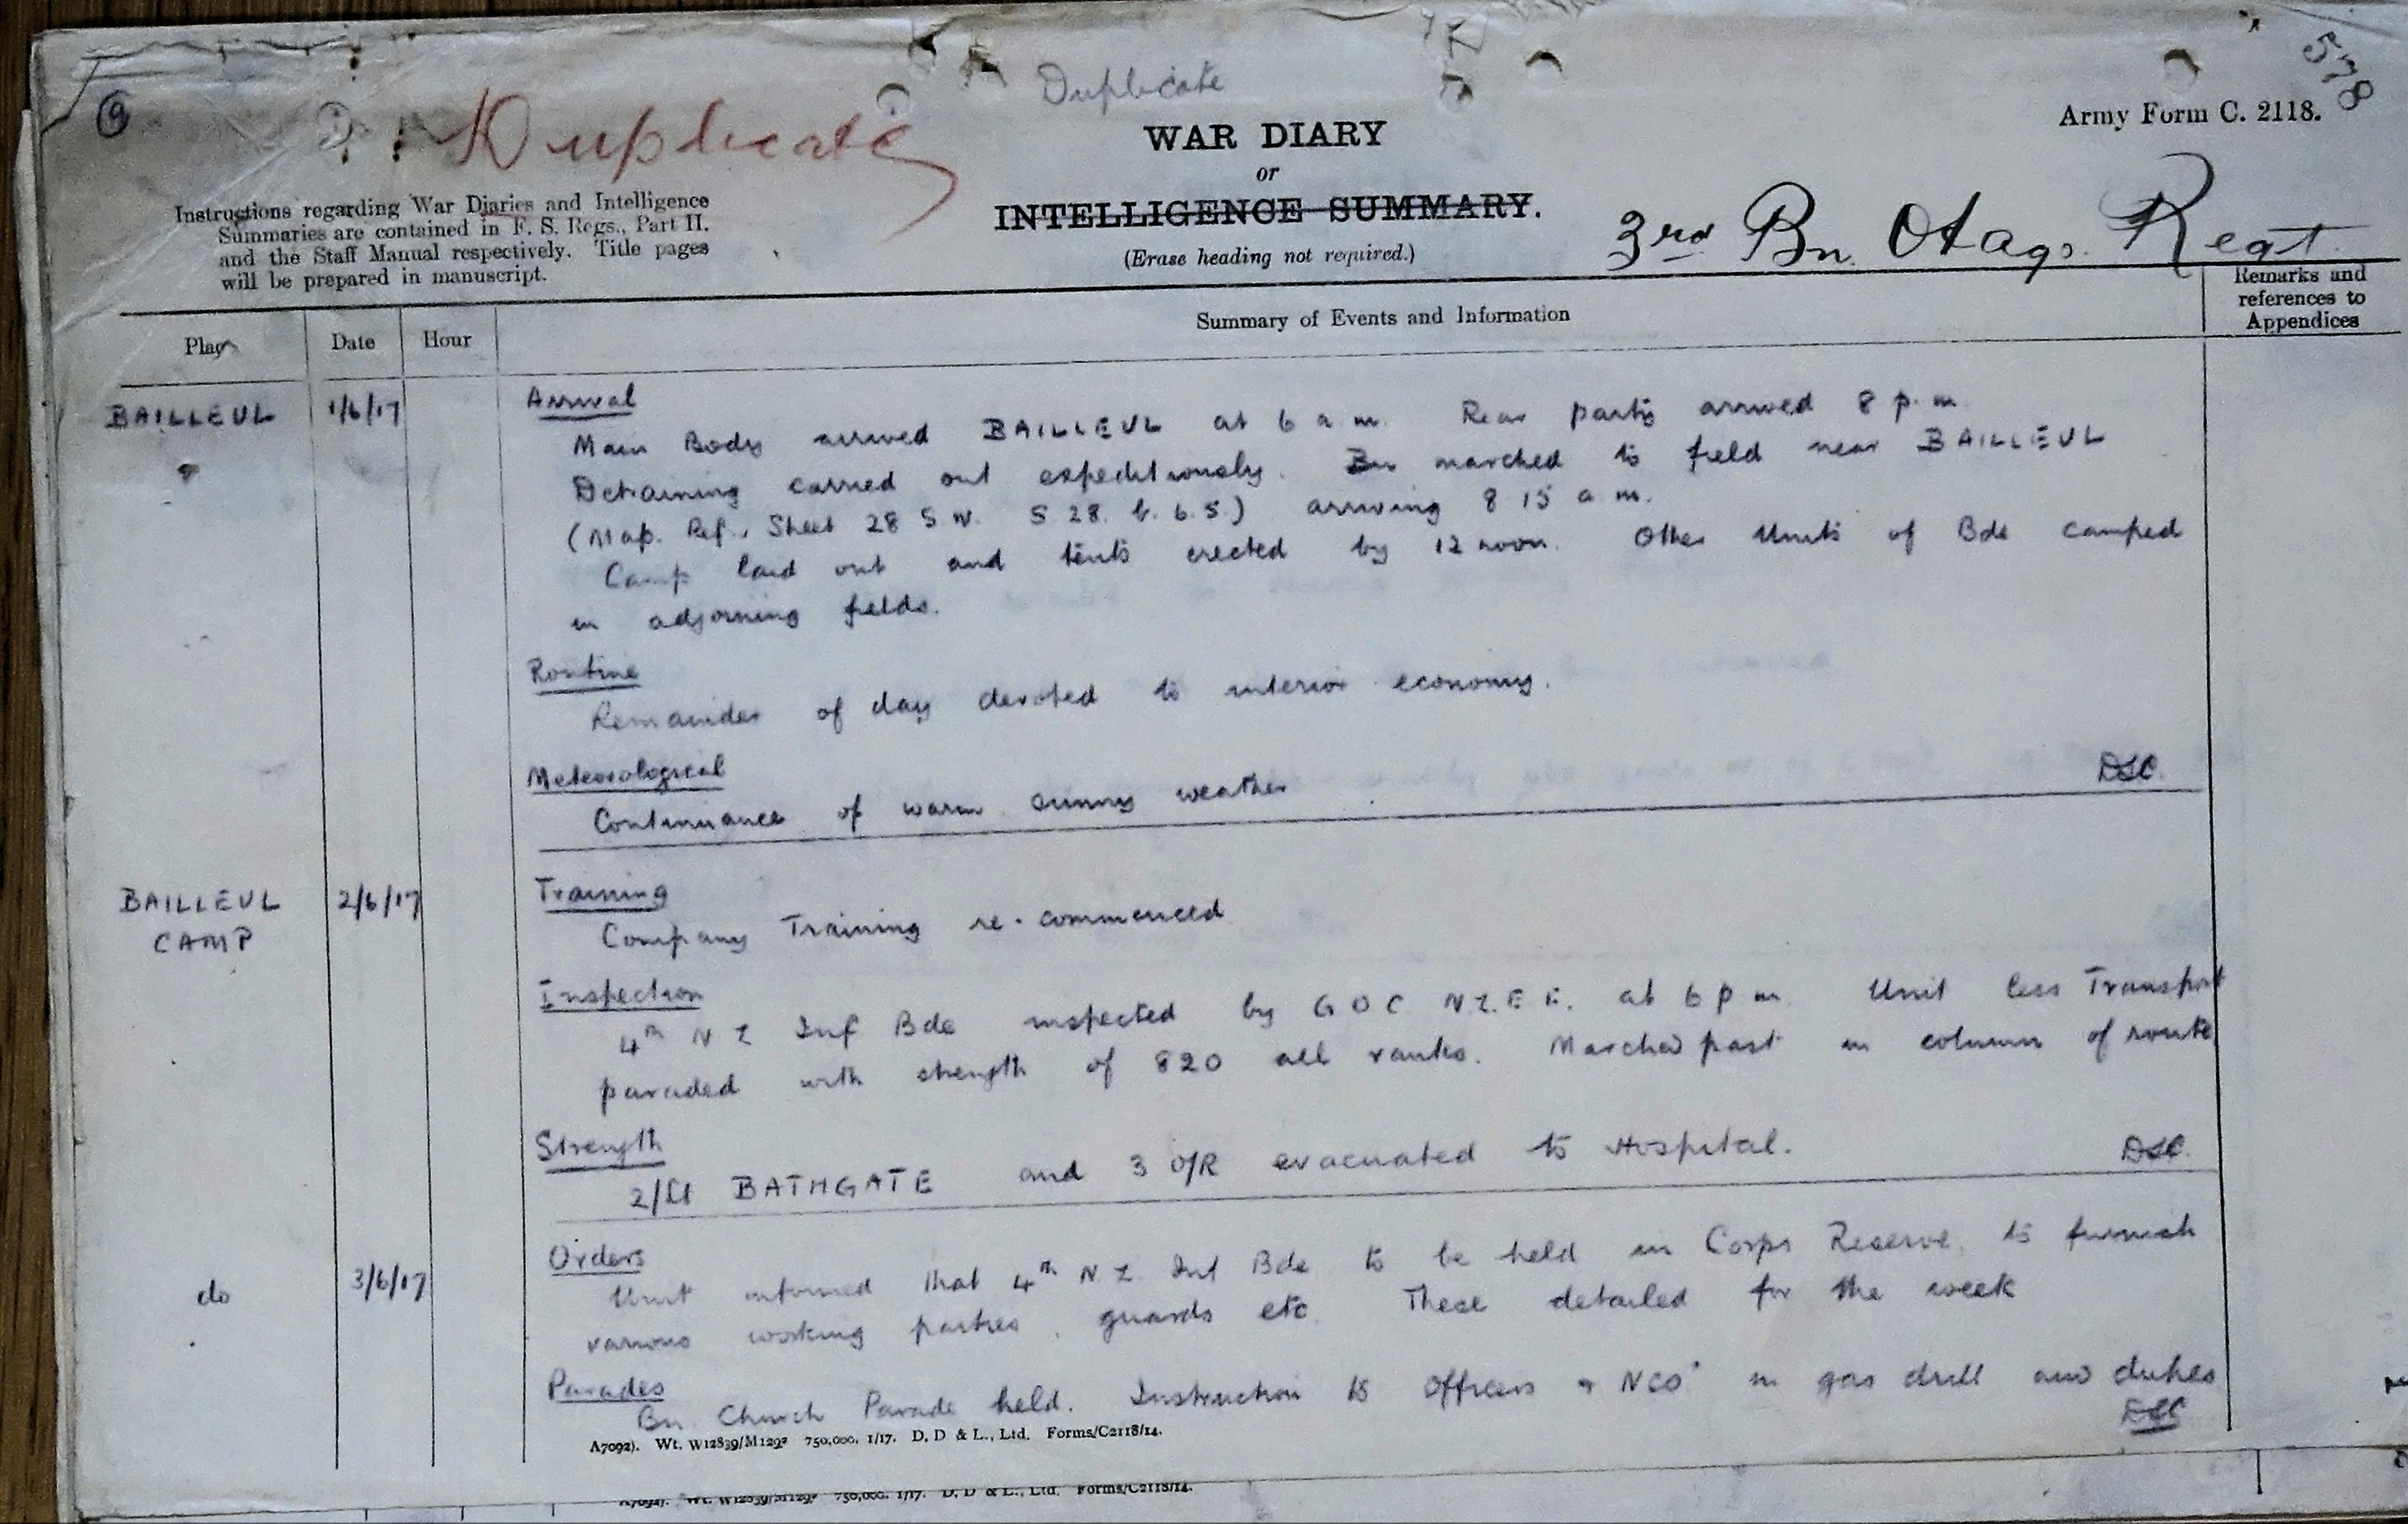 Duplicate
578
9
Duplicate
Army Form C. 2118.
WAR DIARY
or
INTELLIGENCE SUMMARY.
(Erase heading not required.)
Instructions regarding War Diaries and Intelligence
Summaries are contained in F. S. Regs., Part II.
and the Staff Manual respectively. Title pages
will be prepared in manuscript.
3rd Bn. Otago. Regt
Place
Date
Hour
Summary of Events and Information
Remarks and
references to
Appendices
BAILLEUL 1/6/17 Arrival
Main Body arrived BAILLEUL at 6 a.m. Rear party arrived 8 p.m.
Detraining carried out expeditiously. Bn marched to field near BAILLEUL
(Map. Ref. Sheet 28 S.W. S 28. b. 6.5.) arriving 8 15 a m.
Camp laid out and tents erected by 12 noon. Other Units of Bde camped
in adjoining fields.
Routine
Remainder of day devoted to interior economy.
Meteorological
Continuance of warm sunny weather DSC.
BAILLEUL 2/6/17 Training
CAMP
Company Training re-commenced
Inspection
4th N Z Inf Bde inspected by G O C N.Z.E.F. at 6 p m. Unit less Transport
paraded with strength of 820 all ranks. Marched past in column of route
Strength
2/Lt BATHGATE and 3 O/R evacuated to Hospital. DSC.
do 3/6/17 Orders
Unit informed that 4th N.Z. Inf Bde to be held in Corps Reserve, to furnish
various working parties, guards etc. These detailed for the week
Parades
Bn. Church Parade held. Instruction to Officers & NCOs in gas drill and duties
DSC
A7092). Wt. W12839/M1292 750,000. 1/17. D. D & L., Ltd. Forms/C2118/14.
A7092). Wt. W12839/M1292 750,000. 1/17. D. D & L., Ltd. Forms/C2118/14.